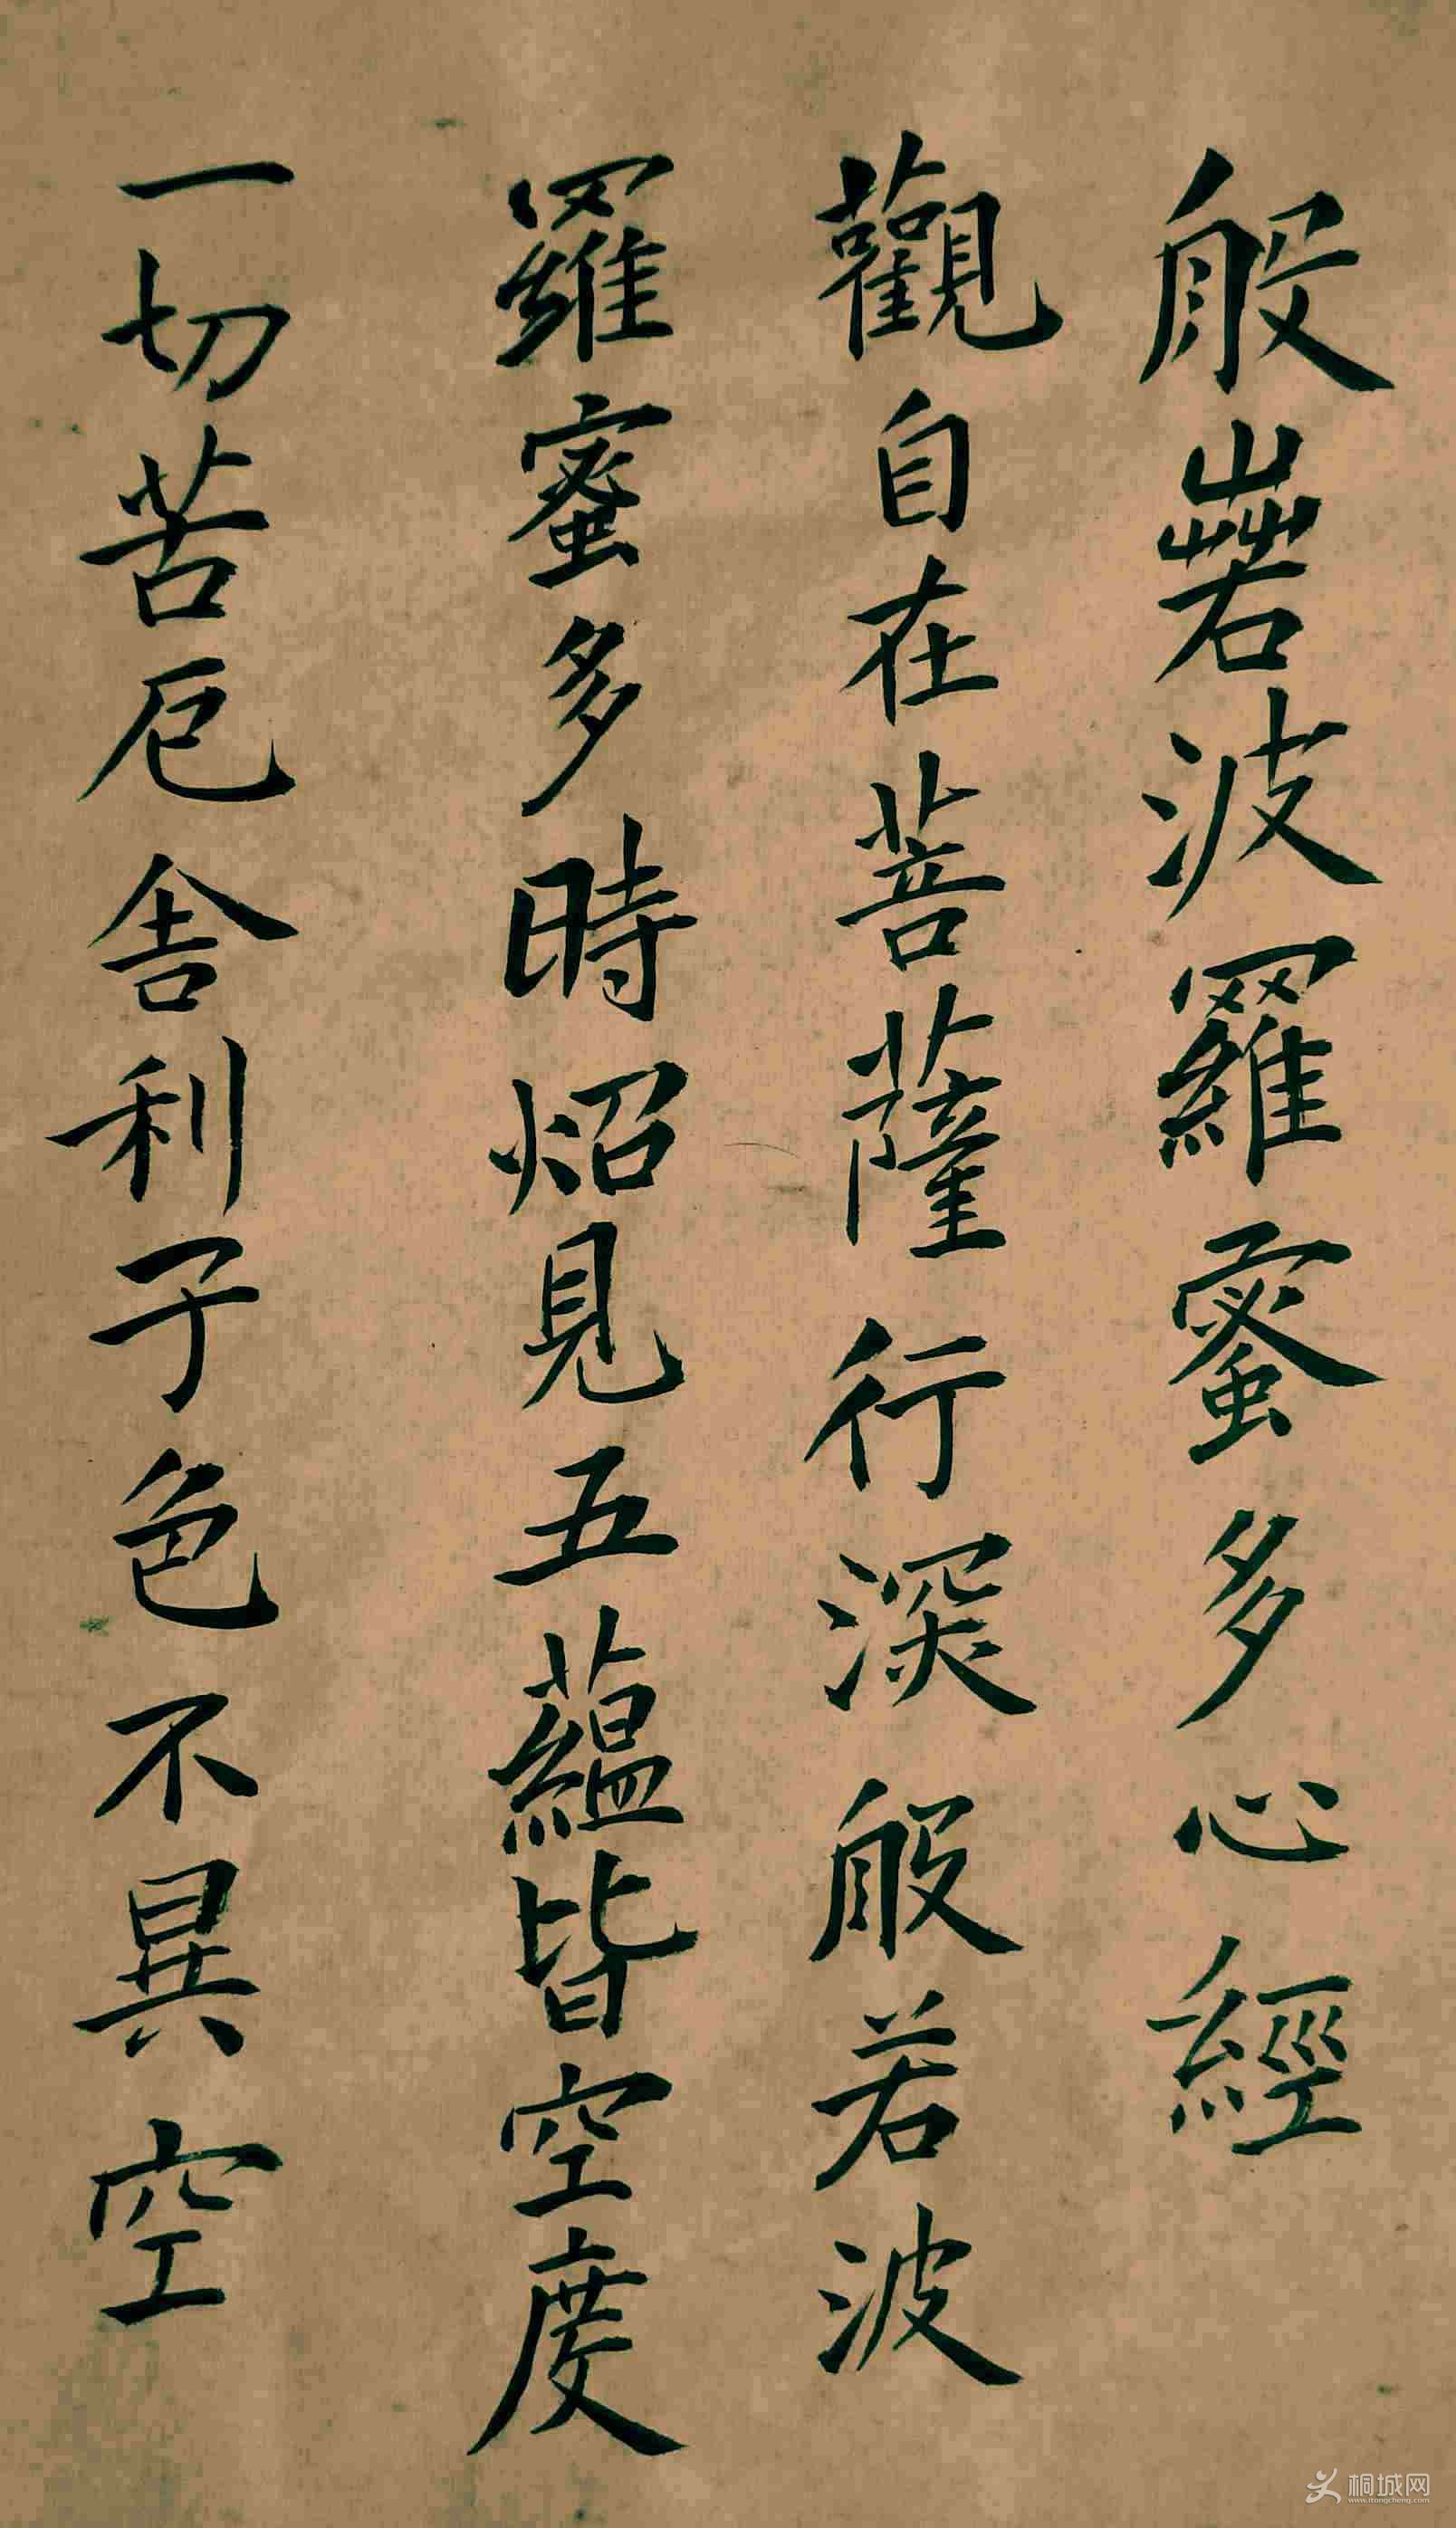 般若波羅蜜多心經
觀自在菩薩行深般若波
羅蜜多時炤見五蘊皆空度
一切苦厄舍利子色不異空
桐城网
www.itongcheng.com